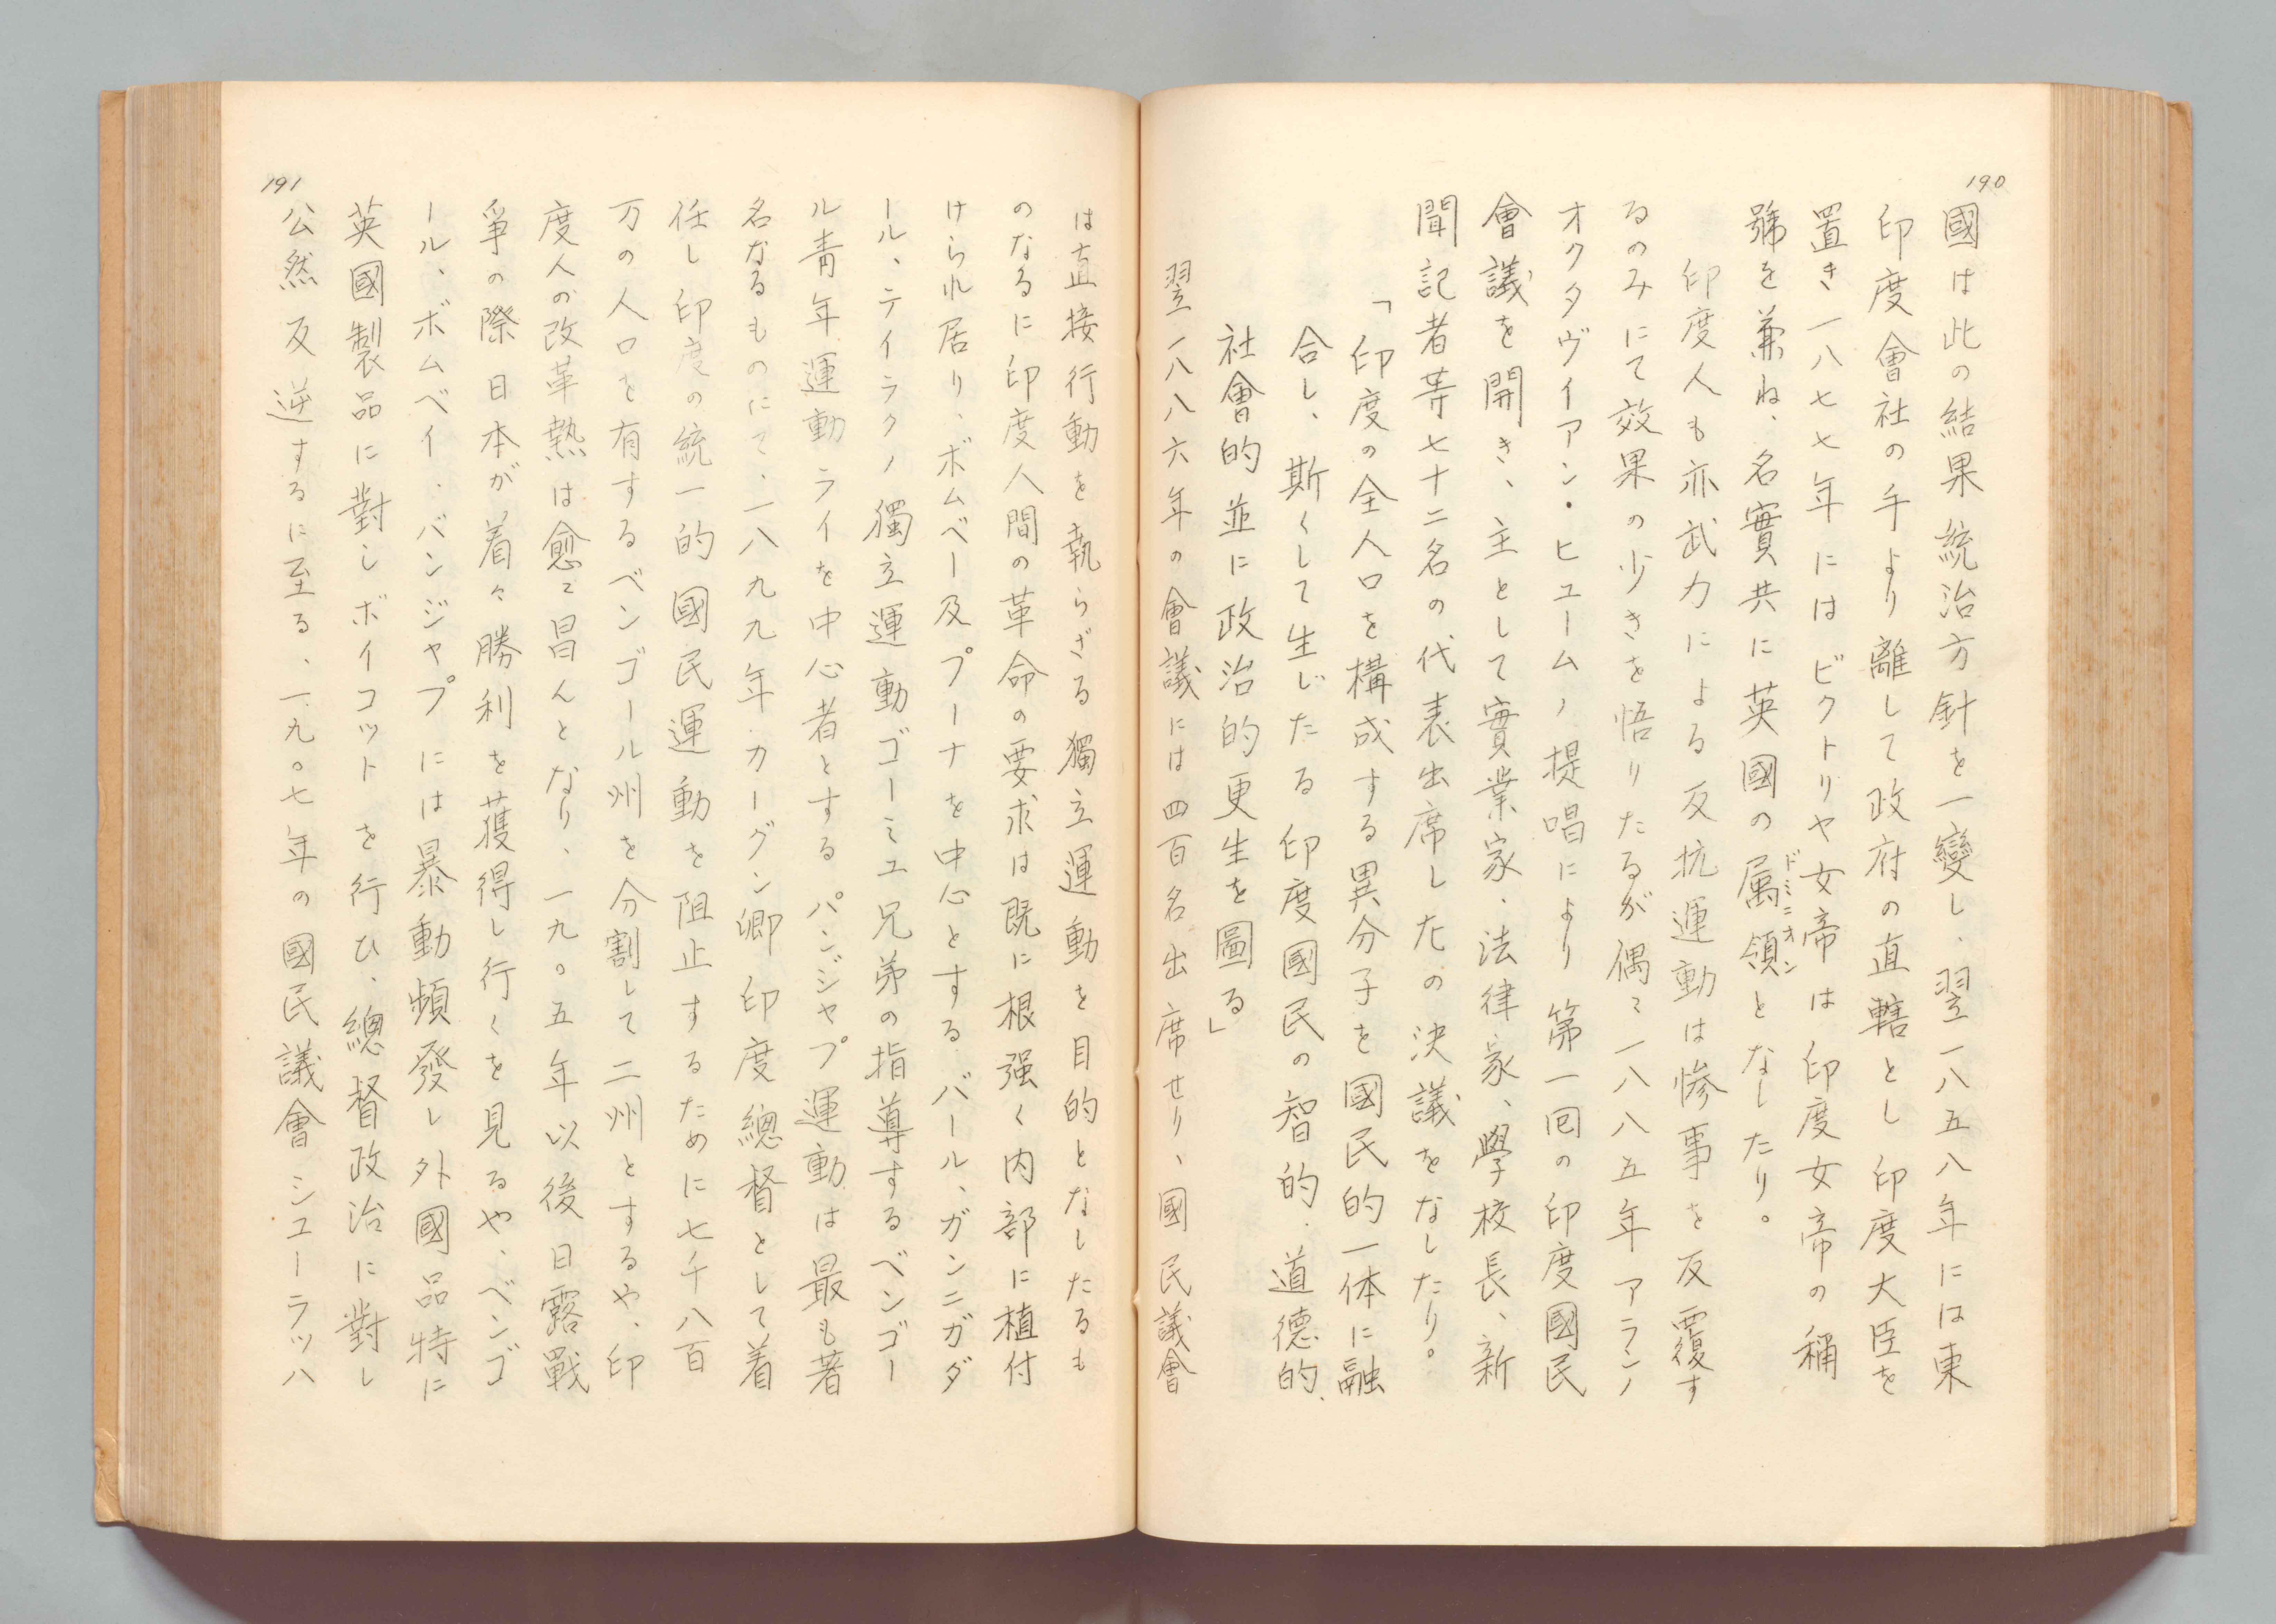 190
國は此の結果統治方針を一變し、翌一八五八年には東
印度會社の手より離して政府の直轄とし印度大臣を
置き一八七七年にはビクトリヤ女帝は印度女帝の稱
號を兼ね、名實共に英國の属領となしたり。
ドミニオン
印度人も亦武力による反抗運動は惨事を反覆す
るのみにて效果の少きを悟りたるが偶々一八八五年アランノ
オクタヴイアン・ヒユームノ提唱により第一回の印度國民
會議を開き、主として實業家、法律家、學校長、新
聞記者等七十二名の代表出席し左の決議をなしたり。
「印度の全人口を構成する異分子を國民的一体に融
合し、斯くして生じたる印度國民の智的、道德的、
社會的並に政治的更生を圖る」
翌一八八六年の會議には四百名出席せり、國民議會
は直接行動を執らざる獨立運動を目的となしたるも
のなるに印度人間の革命の要求は既に根强く内部に植付
けられ居り、ボムベー及プーナを中心とするバール、ガンニガダ
ール、テイラクノ獨立運動ゴーミユ兄弟の指導するベンゴー
ル青年運動ライを中心者とするパンジヤプ運動は最も著
名なるものにて、一八九九年カーグン卿印度總督として着
任し印度の統一的國民運動を阻止するために七千八百
万の人口を有するベンゴール州を分割して二州とするや、印
度人の改革熱は愈々昌んとなり、一九〇五年以後日露戰
爭の際日本が着々勝利を獲得し行くを見るや、ベンゴ
ール、ボムベイ、バンジヤプには暴動頻發し外國品特に
英國製品に對しボイコットを行ひ、總督政治に對し
公然反逆するに至る、一九〇七年の國民議會シユーラツハ
191